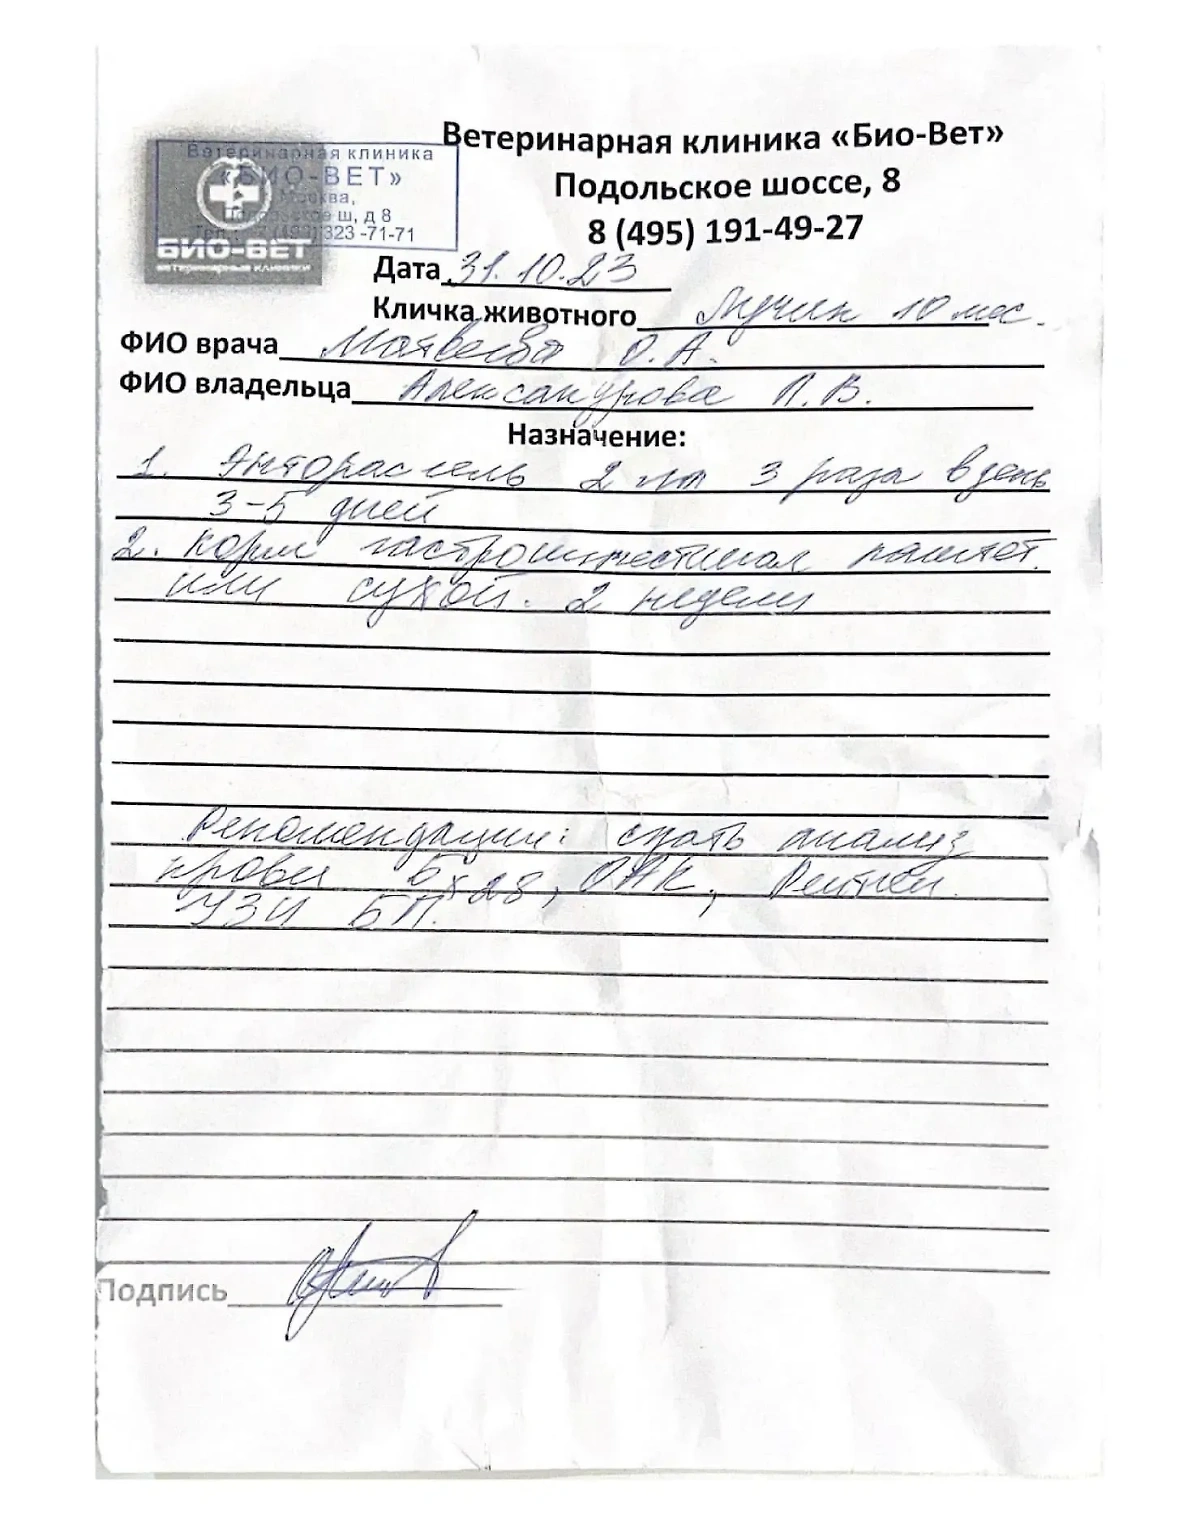 Ветеринарная клиника «Био-Вет»
Подольское шоссе, 8
8 (495) 191-49-27
Ветеринарная клиника
«БИО-ВЕТ»
Москва,
Подольское ш, д 8
323 -71-71
БИО-ВЕТ
ветеринарные клиники
Дата 31.10.23
Кличка животного 10 мес.
ФИО врача Матвеева О. А.
ФИО владельца Александрова П. В.
Назначение:
1. Энторос гель 2 мл 3 раза в день
3-5 дней
2. Корм гастроинтестинал паштет.
или сухой. 2 недели
Рекомендации: сдать анализ
крови Бх28, ОАК,
УЗИ БП.
Подпись